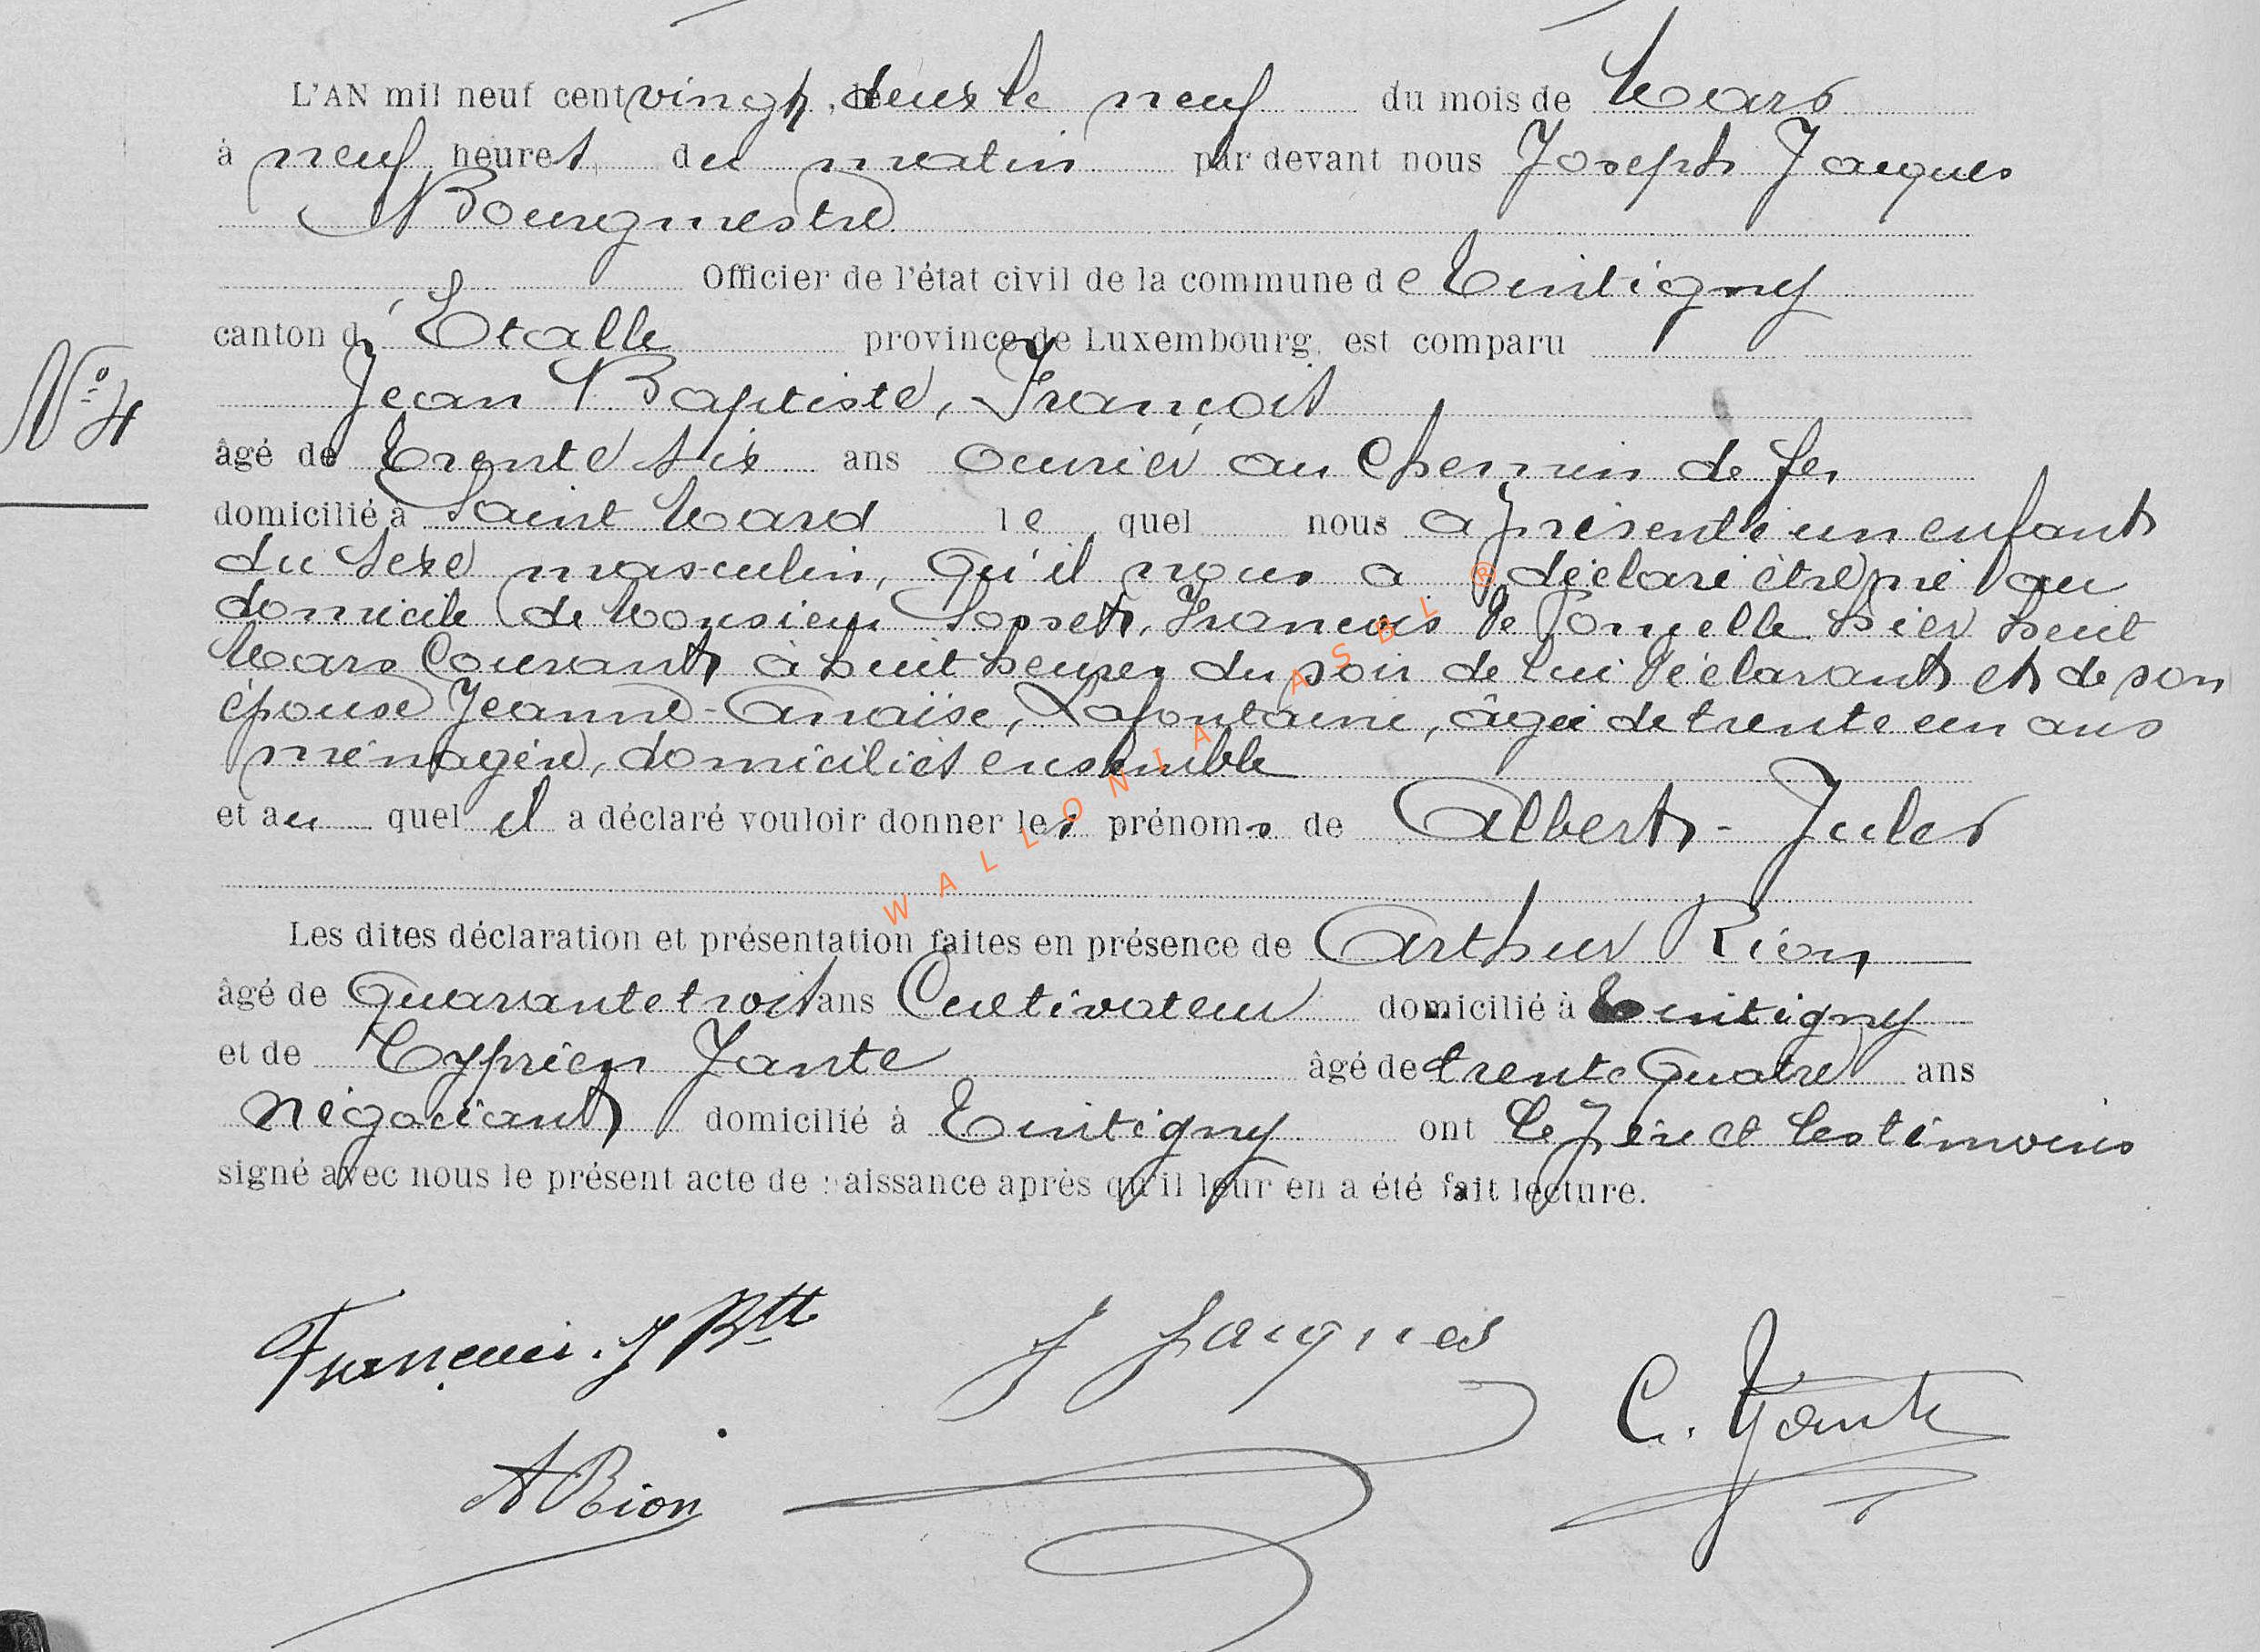 L'AN mil neuf cent vingt deux le neuf du mois de Mars
à neuf heures du matin par devant nous Joseph Jacques
Bourgmestre
Officier de l'état civil de la commune de Tintigny
canton d'Etalle province de Luxembourg, est comparu
Jean Baptiste, François
N° 4
âgé de trente six ans ouvrier au chemin de fer
domicilié à Saint Mard lequel nous a présenté un enfant
du sexe masculin, qu'il nous a déclaré être né au
domicile de Monsieur Sosset, François de Poncelle hier huit
Mars courant à huit heures du soir de lui déclarant et de son
épouse Jeanne-Anaïse, Lafontaine, âgée de trente un ans
ménagère, domiciliés ensemble
et auquel il a déclaré vouloir donner les prénoms de Albert-Jules
Les dites déclaration et présentation faites en présence de Arthur Rion
âgé de quarante trois ans Cultivateur domicilié à Tintigny
et de Cyprien Jante âgé de trente quatre ans
négociant domicilié à Tintigny ont le père et les témoins
signé avec nous le présent acte de naissance après qu'il leur en a été fait lecture.
François. J Btte J Jacques
C. Jante
A Rion
WALLONIA ASBL ®